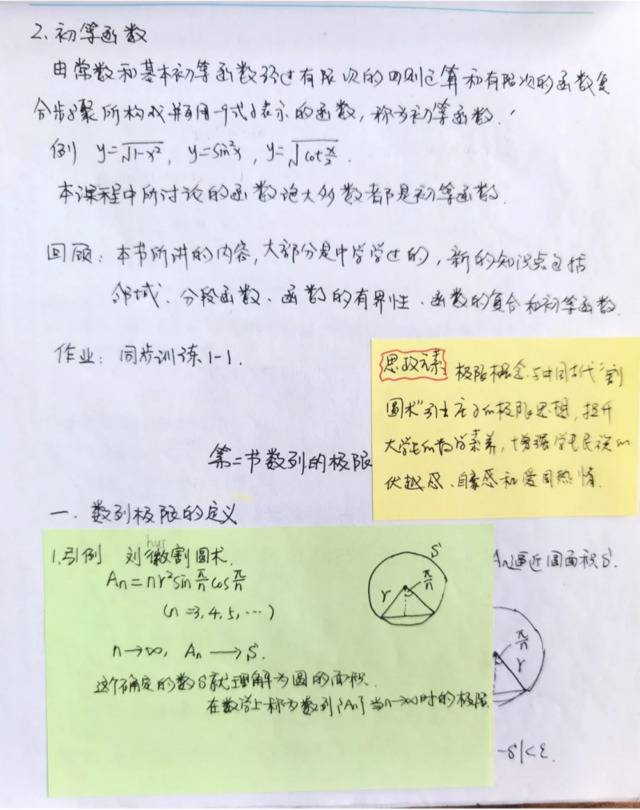 2. 初等函数
由常数和基本初等函数经过有限次的四则运算和有限次的函数复
合步骤所构成并可用一个式子表示的函数，称为初等函数．
例 y=√(1-x²), y=sin²x, y=√(cot x/2).
本课程中所讨论的函数绝大多数都是初等函数．
回顾：本书所讲的内容，大部分是中学学过的，新的知识点包括
邻域、分段函数、函数的有界性、函数的复合和初等函数．
作业：同步训练1-1．
思政元素 极限概念、中国古代"割
圆术"引出庄子的极限思想，提升
大学生的数学素养，增强学生民族的
优越感、自豪感和爱国热情．
第二节数列的极限
一．数列极限的定义
1. 引例 刘徽割圆术．
hui
An=nr²sin π/n cos π/n
(n=3,4,5,…)
n→∞, An→S.
这个确定的数S就理解为圆的面积．
在数学上称为数列{An}当n→∞时的极限
S
r
π/n
An逼近圆面积S.
π/n
r
-S|<ε.